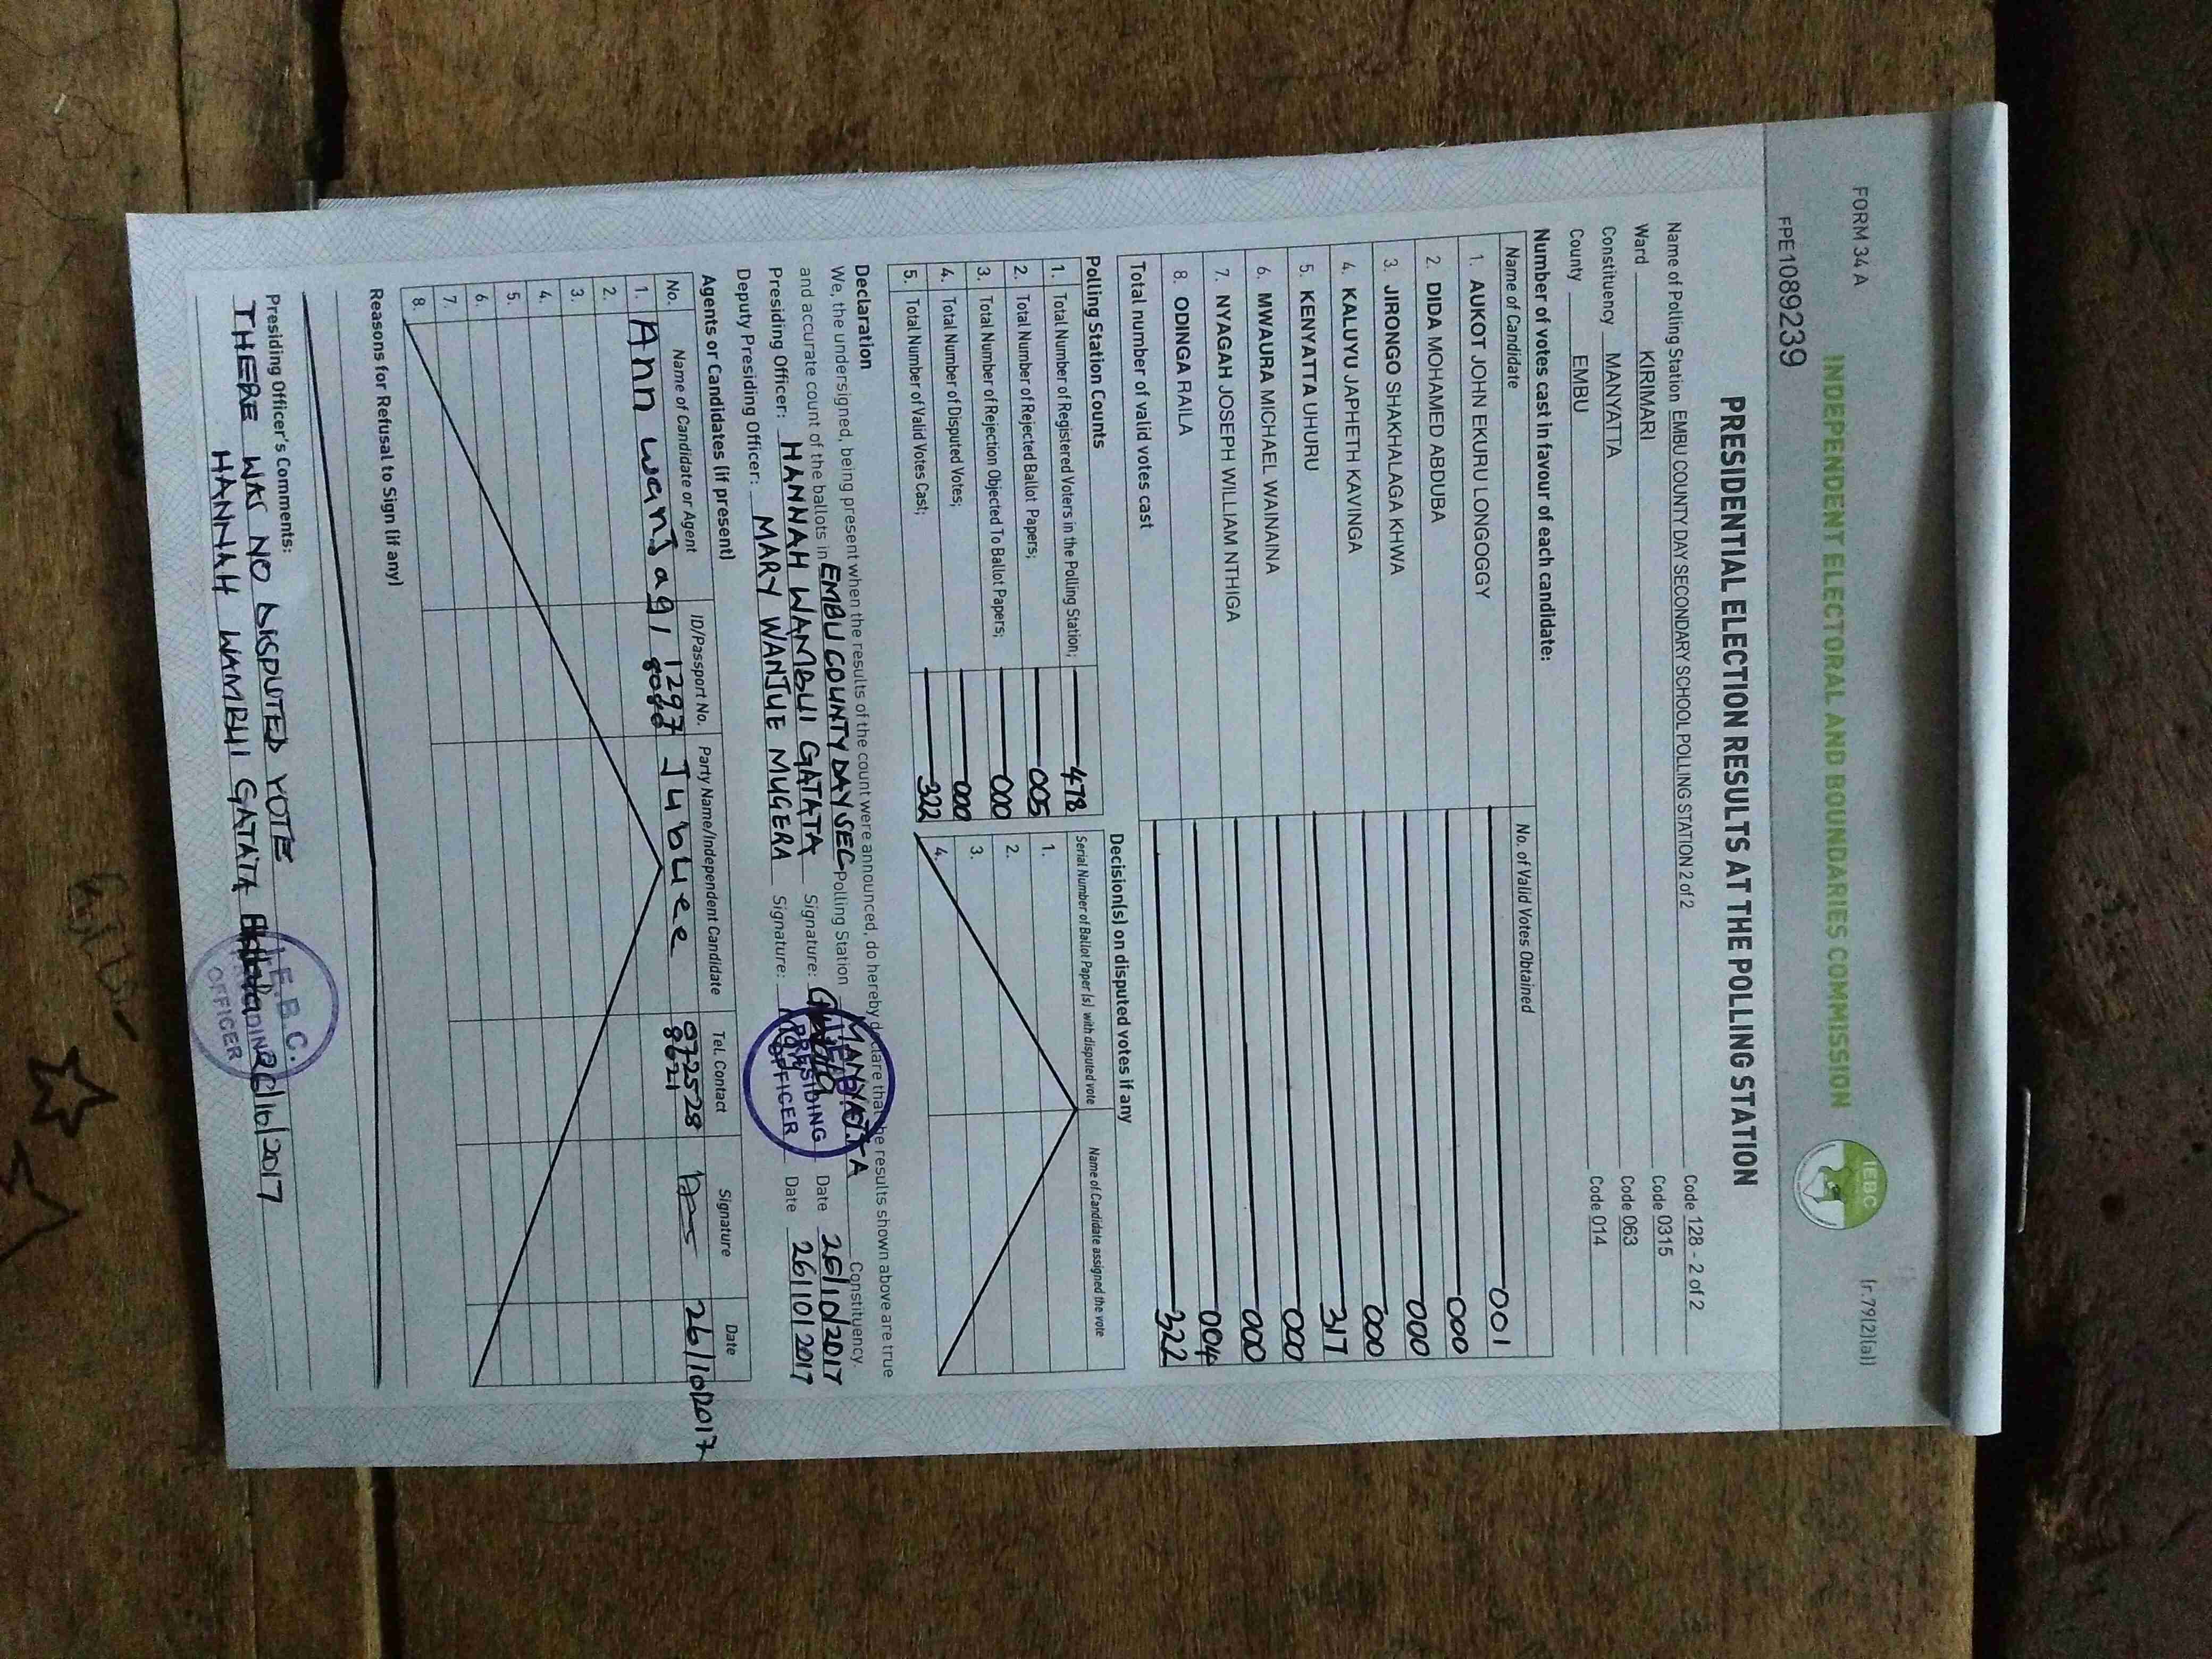 FORM 34 A
(r.79(2)(a))
INDEPENDENT ELECTORAL AND BOUNDARIES COMMISSION
IEBC
FPE1089239
PRESIDENTIAL ELECTION RESULTS AT THE POLLING STATION
Name of Polling Station EMBU COUNTY DAY SECONDARY SCHOOL POLLING STATION 2 of 2 Code 128 - 2 of 2
Ward KIRIMARI Code 0315
Constituency MANYATTA Code 063
County EMBU Code 014
Number of votes cast in favour of each candidate:
Name of Candidate No. of Valid Votes Obtained
1. AUKOT JOHN EKURU LONGOGGY 001
2. DIDA MOHAMED ABDUBA 000
3. JIRONGO SHAKHALAGA KHWA 000
4. KALUYU JAPHETH KAVINGA 000
5. KENYATTA UHURU 317
6. MWAURA MICHAEL WAINAINA 000
7. NYAGAH JOSEPH WILLIAM NTHIGA 000
8. ODINGA RAILA 004
Total number of valid votes cast 322
Polling Station Counts
1. Total Number of Registered Voters in the Polling Station; 478
2. Total Number of Rejected Ballot Papers; 005
3. Total Number of Rejection Objected To Ballot Papers; 000
4. Total Number of Disputed Votes; 000
5. Total Number of Valid Votes Cast; 322
Decision(s) on disputed votes if any
Serial Number of Ballot Paper (s) with disputed vote Name of Candidate assigned the vote
1.
2.
3.
4.
Declaration
We, the undersigned, being present when the results of the count were announced, do hereby declare that the results shown above are true
and accurate count of the ballots in EMBU COUNTY DAY SEC Polling Station MANYATTA Constituency.
Presiding Officer: HANNAH WAMBUI GATATA Signature: Date 26/10/2017
Deputy Presiding Officer: MARY WANJUE MUGERA Signature: Date 26/10/2017
PRESIDING
OFFICER
Agents or Candidates (if present)
No. Name of Candidate or Agent ID/Passport No. Party Name/Independent Candidate Tel. Contact Signature Date
1. Ann wanJagi 1297 Jubliee 0725528 26/10/2017
8621
2.
3.
4.
5.
6.
7.
8.
Reasons for Refusal to Sign (if any)
Presiding Officer's Comments:
THERE WAS NO DISPUTED VOTE
HANNAH WAMBUI GATATA 26/10/2017
I.E.B.C.
OFFICER